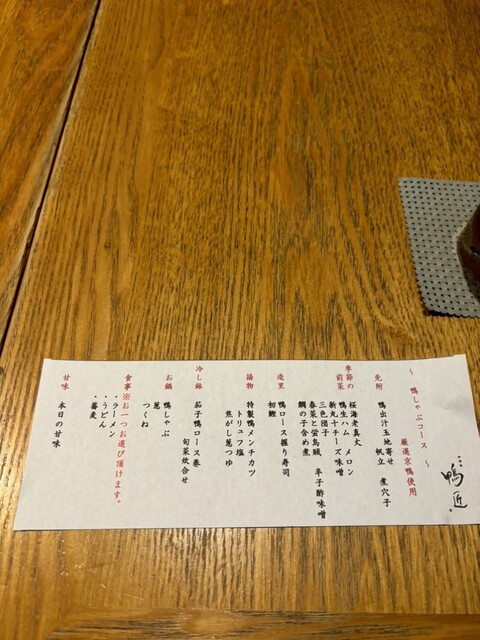 〜 鴨しゃぶコース 〜
厳選京鴨使用
鴨匠
先附
鴨出汁玉地寄せ 煮穴子
帆立
季節の前菜
桜海老真丈
鴨生ハム メロン
新丸十チーズ味噌
三色団子
春菜と蛍烏賊 辛子酢味噌
鯛の子含め煮
造里
鴨ロース握り寿司
初鰹
揚物
特製鴨メンチカツ
トリュフ塩
焦がし葱つゆ
冷し鉢
茄子鴨ロース巻
旬菜炊合せ
お鍋
鴨しゃぶ
葱
つくね
食事※お一つお選び頂けます。
・ラーメン
・うどん
・蕎麦
甘味
本日の甘味